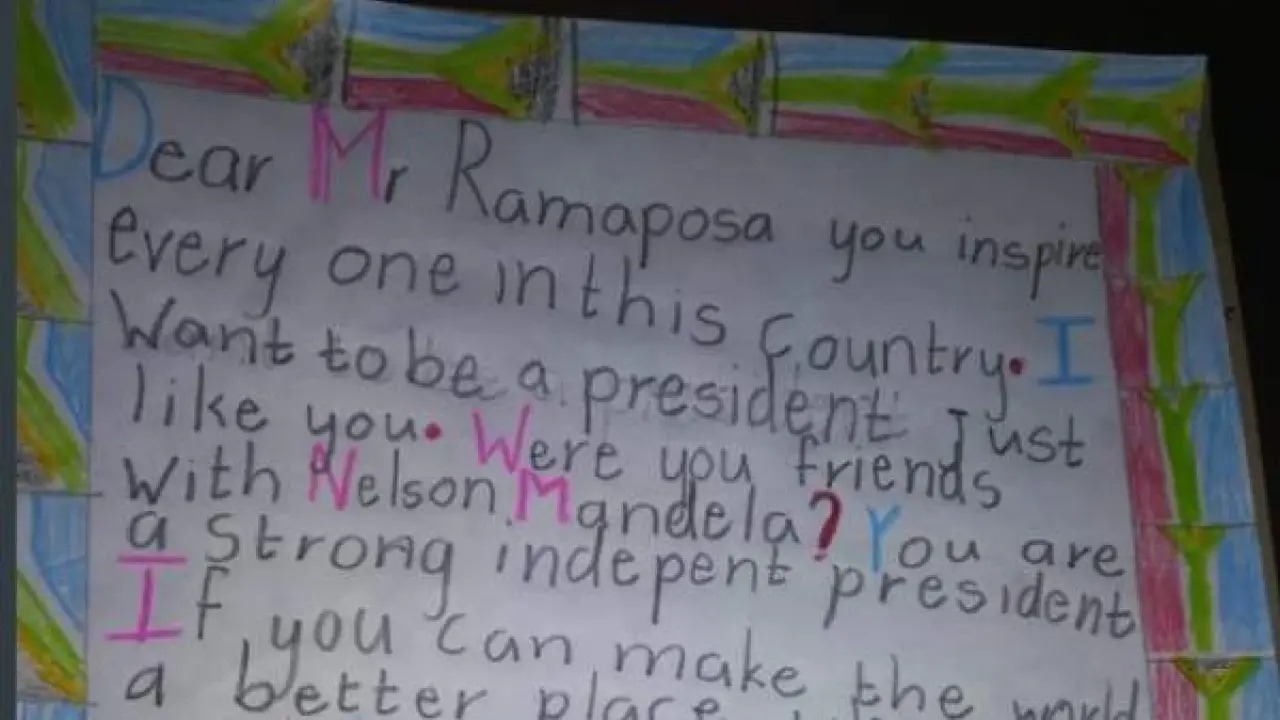 Dear Mr Ramaposa you inspire
every one in this Country. I
Want to be a president Just
like you. Were you friends
with Nelson Mandela? You are
a strong indepent president
If you can make the world
a better place